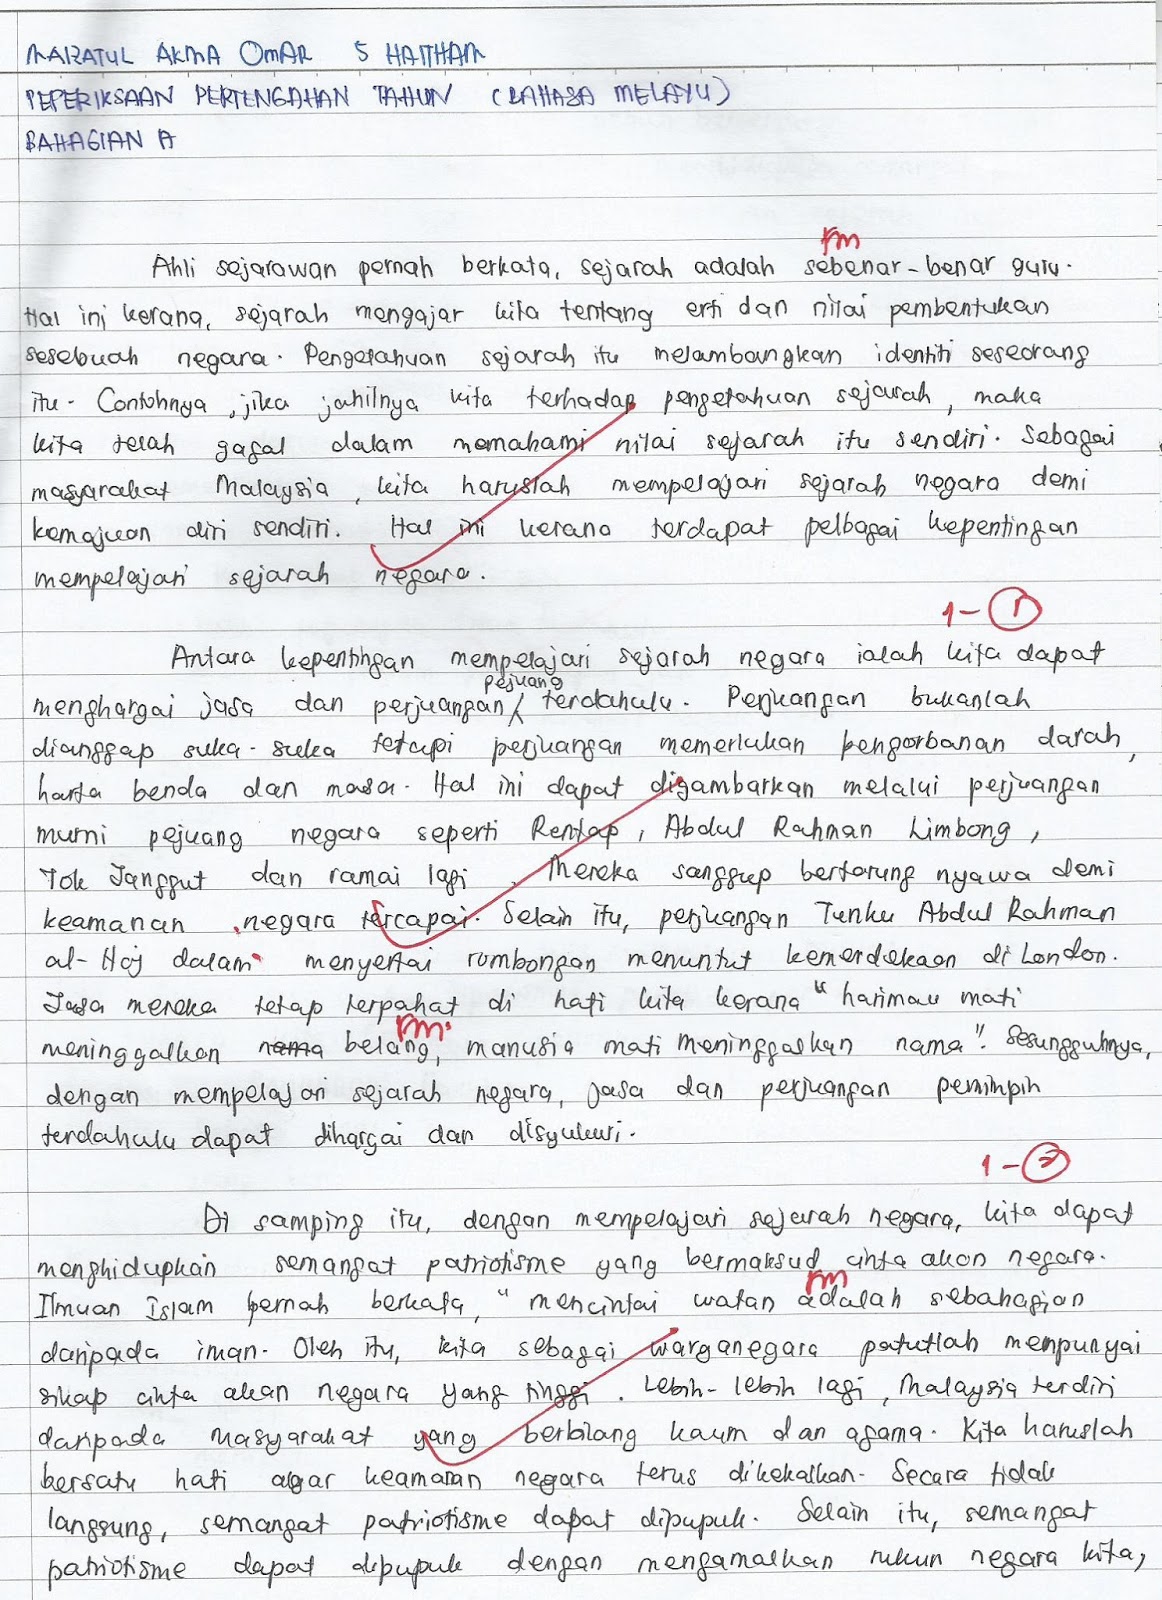 MAIZATUL AKMA OMAR 5 HAITHAM
PEPERIKSAAN PERTENGAHAN TAHUN (BAHASA MELAYU)
BAHAGIAN A
rm
Ahli sejarawan pernah berkata, sejarah adalah sebenar-benar guru.
Hal ini kerana, sejarah mengajar kita tentang erti dan nilai pembentukan
sesebuah negara. Pengetahuan sejarah itu melambangkan identiti seseorang
itu. Contohnya, jika jahilnya kita terhadap pengetahuan sejarah, maka
kita telah gagal dalam memahami nilai sejarah itu sendiri. Sebagai
masyarakat Malaysia, kita haruslah mempelajari sejarah negara demi
kemajuan diri sendiri. Hal ini kerana terdapat pelbagai kepentingan
mempelajari sejarah negara.
1-1
Antara kepentingan mempelajari sejarah negara ialah kita dapat
pejuang
menghargai jasa dan perjuangan / terdahulu. Perjuangan bukanlah
dianggap suka-suka tetapi perjuangan memerlukan pengorbanan darah,
harta benda dan masa. Hal ini dapat digambarkan melalui perjuangan
murni pejuang negara seperti Rentap, Abdul Rahman Limbong,
Tok Janggut dan ramai lagi. Mereka sanggup bertarung nyawa demi
keamanan negara tercapai. Selain itu, perjuangan Tunku Abdul Rahman
al-Haj dalam menyertai rombongan menuntut kemerdekaan di London.
Jasa mereka tetap terpahat di hati kita kerana "harimau mati
rm.
meninggalkan nama belang, manusia mati meninggalkan nama". Sesungguhnya,
dengan mempelajari sejarah negara, jasa dan perjuangan pemimpin
terdahulu dapat dihargai dan disyukuri.
1-2
Di samping itu, dengan mempelajari sejarah negara, kita dapat
menghidupkan semangat patriotisme yang bermaksud cinta akan negara.
rm
Ilmuan Islam pernah berkata, "mencintai watan adalah sebahagian
daripada iman. Oleh itu, kita sebagai warganegara patutlah mempunyai
sikap cinta akan negara yang tinggi. Lebih-lebih lagi, Malaysia terdiri
daripada masyarakat yang berbilang kaum dan agama. Kita haruslah
bersatu hati agar keamanan negara terus dikekalkan. Secara tidak
langsung, semangat patriotisme dapat dipupuk. Selain itu, semangat
patriotisme dapat dipupuk dengan mengamalkan rukun negara kita,